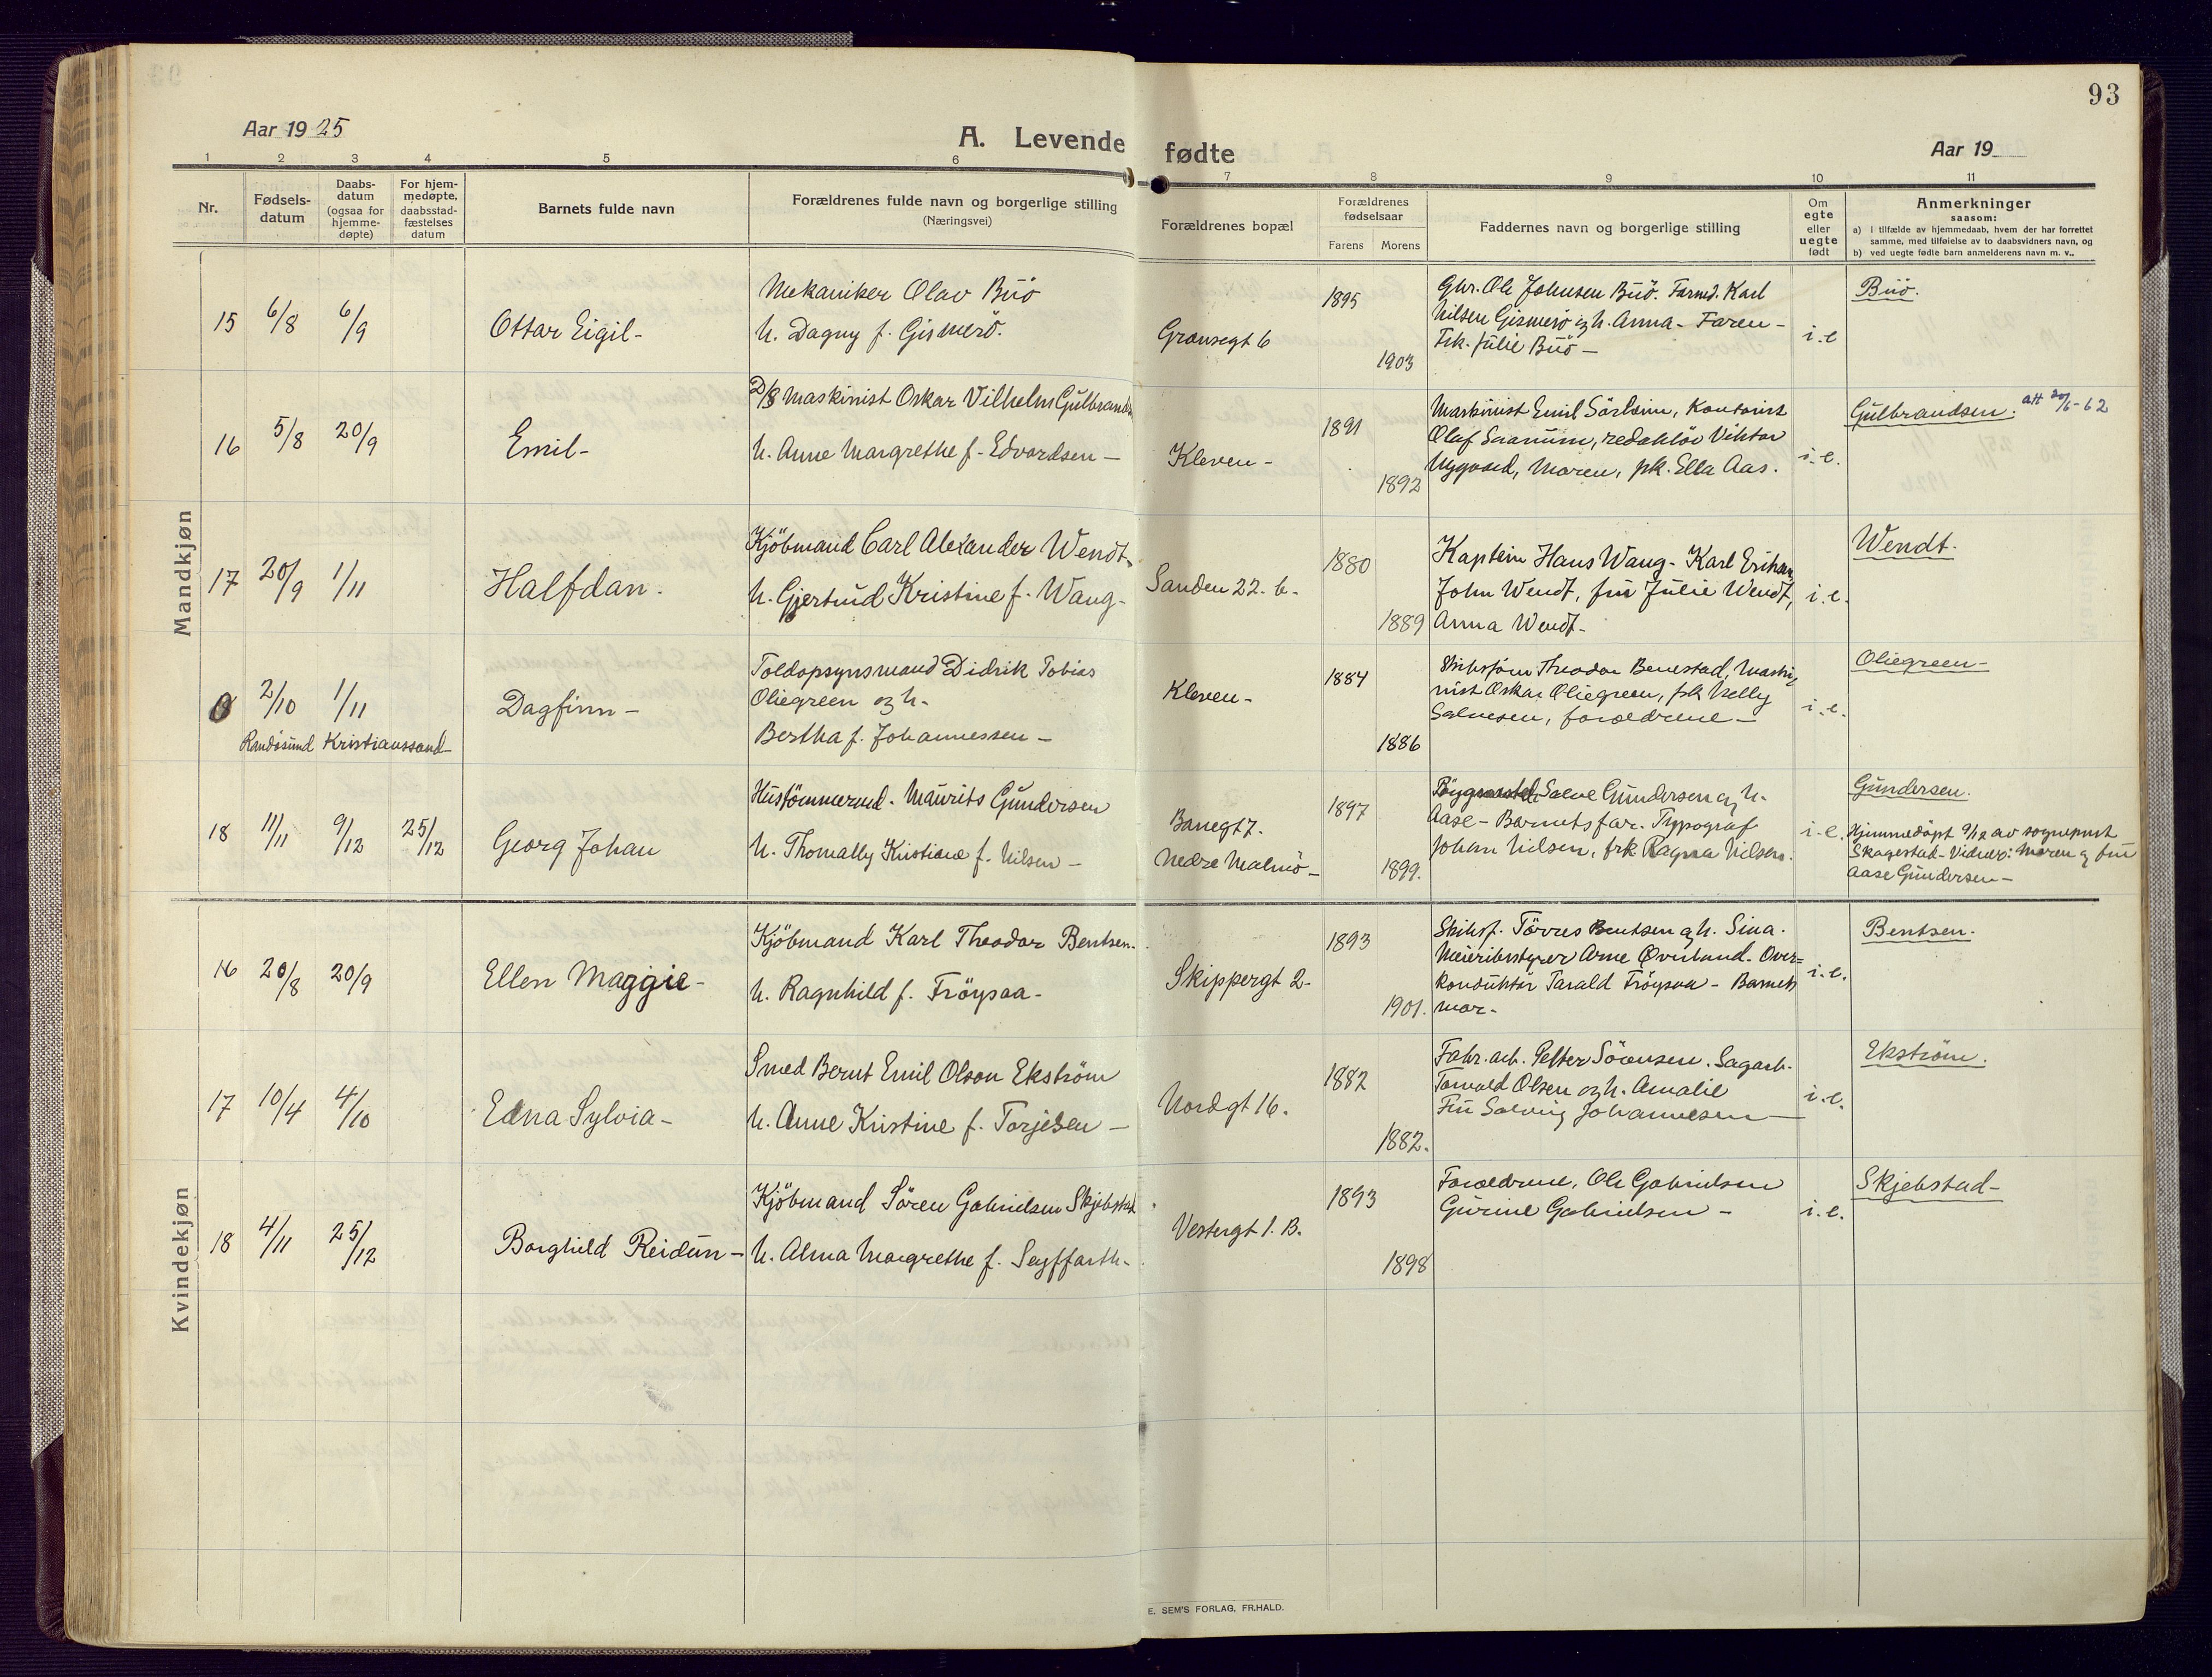 93
Aar 1925
A. Levende fødte
Aar 19
1 2 3 4 5 6 7 8 9 10 11
Nr.
Fødsels-
datum
Daabs-
datum
(ogsaa for
hjemme-
døpte)
For hjem-
medøpte,
daabsstad-
fæstelses
datum
Barnets fulde navn
Forældrenes fulde navn og borgerlige stilling
(Næringsvei)
Forældrenes bopæl
Forældrenes
fødselsaar
Farens Morens
Faddernes navn og borgerlige stilling
Om
egte
eller
uegte
født
Anmerkninger
saasom:
a) i tilfælde av hjemmedaab, hvem der har forrettet
samme, med tilføielse av to daabsvidners navn, og
b) ved uegte fødte barn anmelderens navn m. v..
Mandkjøn
15 6/8 6/9
Ottar Eigil-
Mekaniker Olav Büö
h. Dagny f. Gismerö.
Gransegt 6
1895
1903
Gbr. Ole Johnsen Büö. Farmd. Karl
Nilsen Gismerö og h. Anna- Faren-
Frk. Julie Büö-
i.e
Büö.
16 5/8 20/9
Emil-
D/S Maskinist Oskar Vilhelm Gulbrandsen
h. Anne Margrethe f. Edvardsen-
Kleven-
1891
1892
Maskinist Emil Sörheim, Kontorist
Olaf Saanum, redaktör Viktor
Nygaard, Moren, frk. Ella Aas.
i.e.
Gulbrandsen. att 20/6-62
17 20/9 1/11
Halfdan.
Kjöbmand Carl Alexander Wendt.
h. Gjertrud Kristine f. Wang-
Sanden 22. b.
1880
1889
Kaptein Hans Wang- Karl Eriksen
John Wendt, fru Julie Wendt,
Anna Wendt-
i.e.
Wendt.
0 2/10 1/11
Randösund Kristianssand-
Dagfinn-
Toldopsynsmand Didrik Tobias
Oliegreen og h.
Bertha f. Johannessen-
Kleven-
1884
1886
Skibsförer Theodor Benestad, Maski
nist Oskar Oliegreen, frk Nelly
Salvesen, forældrene-
i.e.
Oliegreen-
18 11/11 9/12 25/12
Georg Johan
Hustömmermd. Maurits Gundersen
h. Thomally Kristiane f. Nilsen-
Banegt 7.
Nedre Malmö-
1897
1899.
Salve Gundersen og h.
Aase- Barnets far. Typograf
Johan Nilsen, frk Ragna Nilsen.
i.e.
Gundersen.
Hjemmedöpt 9/12 av sogneprest
Skagestad- Vidner: Moren og fru
Aase Gundersen-
Kvindekjøn
16 20/8 20/9
Ellen Maggie-
Kjöbmand Karl Theodor Bentsen.
h. Ragnhild f. Fröysaa-
Skippergt 2-
1893
1901.
Skibsf. Törres Bentsen og h. Sina.
Meieribestyrer Arne Överland. Over-
konduktör Tarald Fröysaa- Barnets
mor-
i.e.
Bentsen.
17 10/4 4/10
Edna Sylvia-
Smed Bernt Emil Olson Ekström
h. Anne Kristine f. Torjesen-
Nordgt 16.
1882
1882.
Fabr.arb. Petter Sörensen. Sagarb.
Torvald Olsen og h. Amalie
Fru Solveig Johannesen-
i.e.
Ekström.
18 4/11 25/12
Borghild Reidun-
Kjöbmand Sören Gabrielsen Skjebstad
h. Alma Margrethe f. Seyffarth-
Vestergt 1. B.
1893
1898
Forældrene, Ole Gabrielsen
Gurine Gabrielsen-
i.e.
Skjebstad-
E. SEM'S FORLAG, FR.HALD.